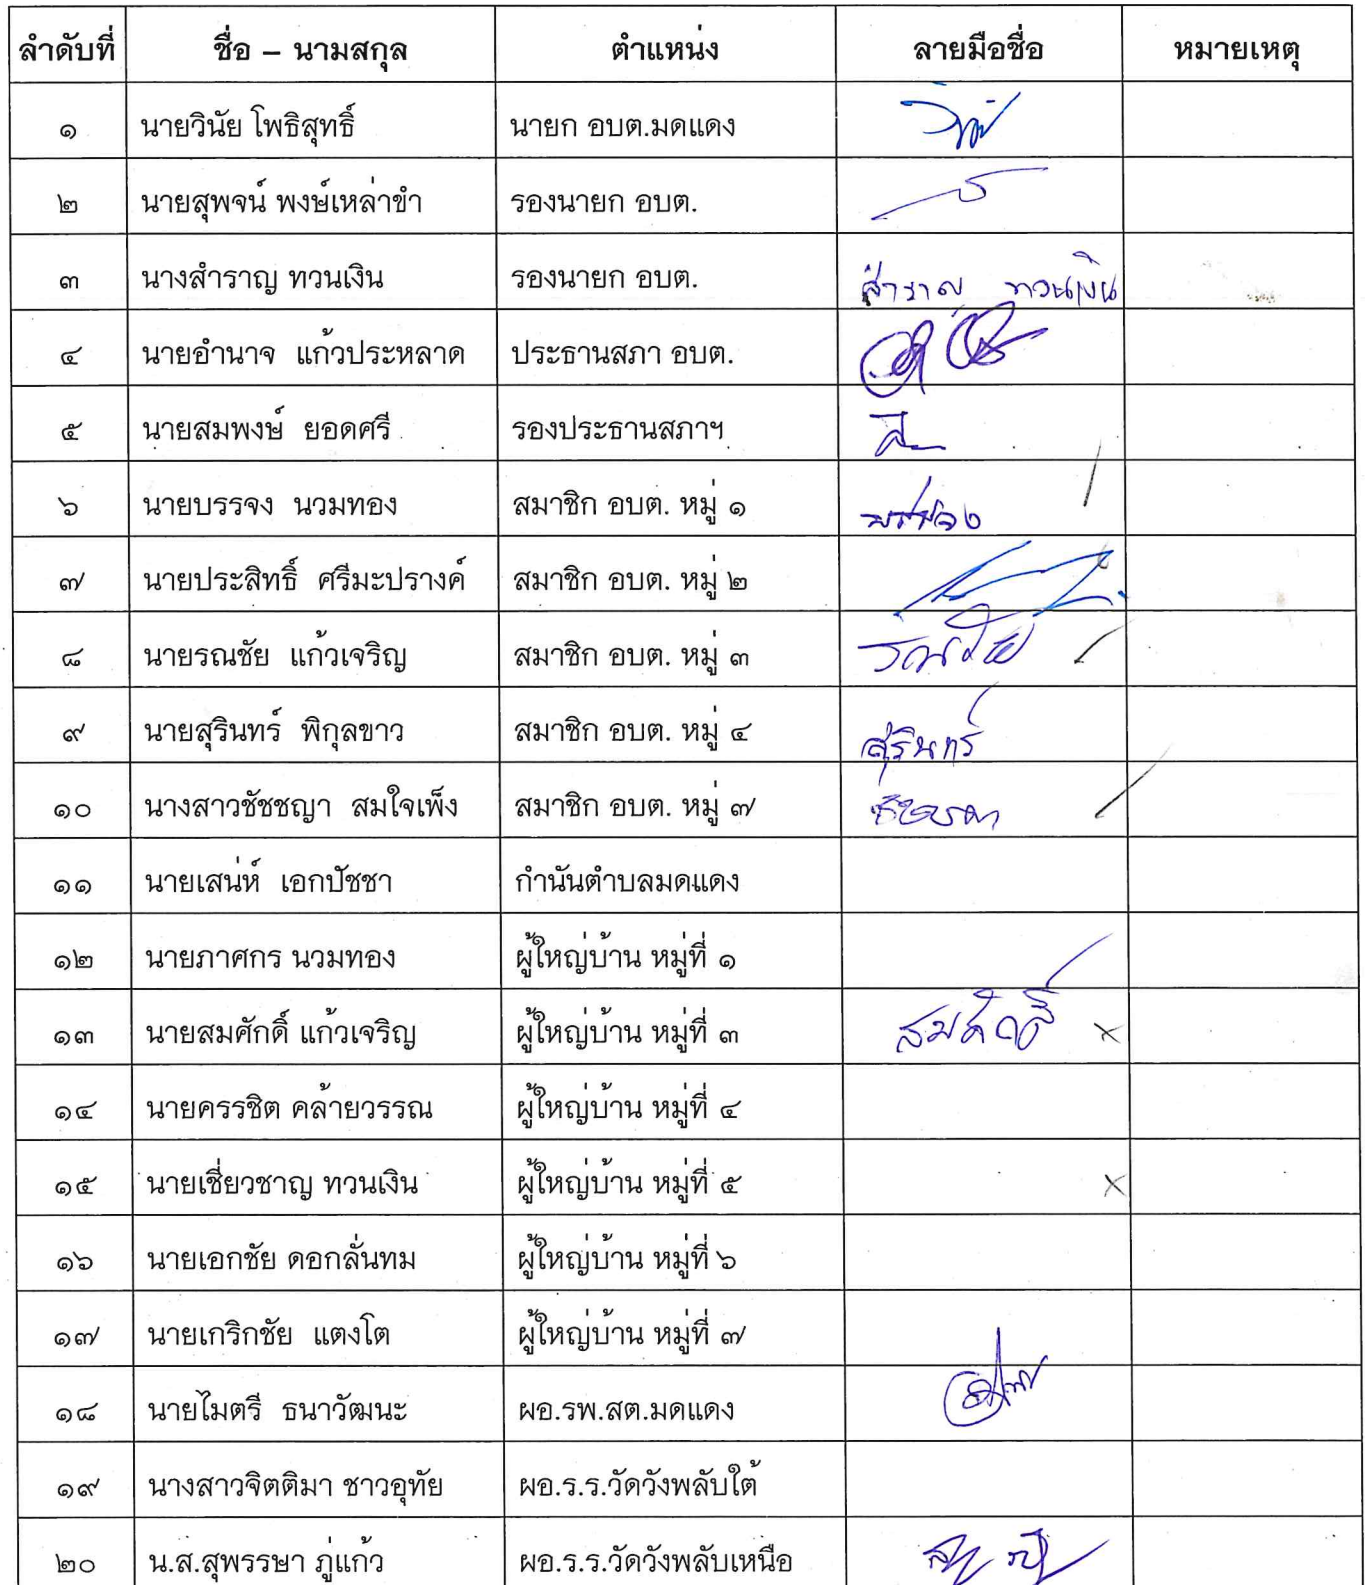 ลำดับที่ ชื่อ – นามสกุล ตำแหน่ง ลายมือชื่อ หมายเหตุ
๑ นายวินัย โพธิสุทธิ์ นายก อบต.มดแดง
๒ นายสุพจน์ พงษ์เหล่าขำ รองนายก อบต.
๓ นางสำราญ ทวนเงิน รองนายก อบต. สำราญ ทวนเงิน
๔ นายอำนาจ แก้วประหลาด ประธานสภา อบต.
๕ นายสมพงษ์ ยอดศรี รองประธานสภาฯ
๖ นายบรรจง นวมทอง สมาชิก อบต. หมู่ ๑
๗ นายประสิทธิ์ ศรีมะปรางค์ สมาชิก อบต. หมู่ ๒
๘ นายรณชัย แก้วเจริญ สมาชิก อบต. หมู่ ๓ รณชัย
๙ นายสุรินทร์ พิกุลขาว สมาชิก อบต. หมู่ ๔ สุรินทร์
๑๐ นางสาวชัชชญา สมใจเพ็ง สมาชิก อบต. หมู่ ๗
๑๑ นายเสน่ห์ เอกปัชชา กำนันตำบลมดแดง
๑๒ นายภาศกร นวมทอง ผู้ใหญ่บ้าน หมู่ที่ ๑
๑๓ นายสมศักดิ์ แก้วเจริญ ผู้ใหญ่บ้าน หมู่ที่ ๓ สมศักดิ์
๑๔ นายครรชิต คล้ายวรรณ ผู้ใหญ่บ้าน หมู่ที่ ๔
๑๕ นายเชี่ยวชาญ ทวนเงิน ผู้ใหญ่บ้าน หมู่ที่ ๕
๑๖ นายเอกชัย ดอกลั่นทม ผู้ใหญ่บ้าน หมู่ที่ ๖
๑๗ นายเกริกชัย แตงโต ผู้ใหญ่บ้าน หมู่ที่ ๗
๑๘ นายไมตรี ธนาวัฒนะ ผอ.รพ.สต.มดแดง
๑๙ นางสาวจิตติมา ชาวอุทัย ผอ.ร.ร.วัดวังพลับใต้
๒๐ น.ส.สุพรรษา ภู่แก้ว ผอ.ร.ร.วัดวังพลับเหนือ